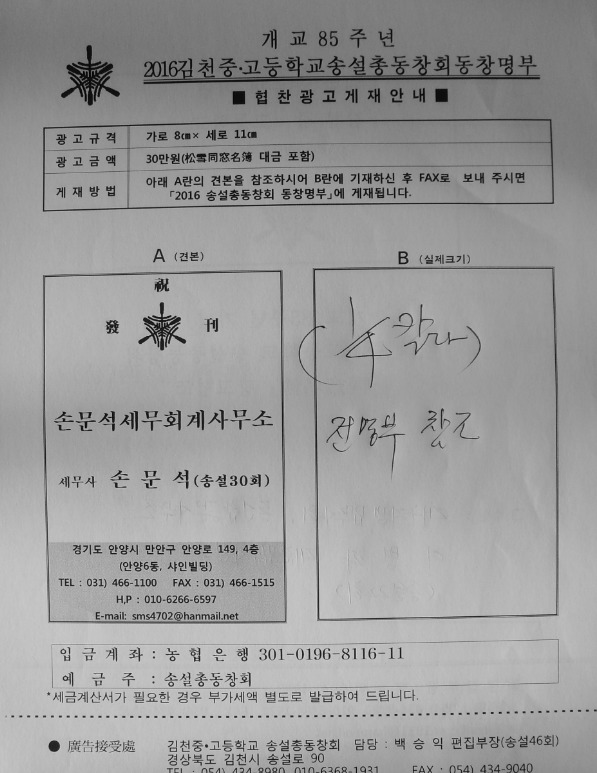 개 교 85 주 년
2016김천중·고등학교송설총동창회동창명부
■ 협 찬 광 고 게 재 안 내 ■
광 고 규 격 가로 8㎝× 세로 11㎝
광 고 금 액 30만원(松雪同窓名簿 대금 포함)
게 재 방 법 아래 A란의 견본을 참조하시어 B란에 기재하신 후 FAX로 보내 주시면
「2016 송설총동창회 동창명부」에 게재됩니다.
A (견본)
祝
發 刊
손문석세무회계사무소
세무사 손 문 석(송설30회)
경기도 안양시 만안구 안양로 149, 4층
(안양6동, 샤인빌딩)
TEL : 031) 466-1100 FAX : 031) 466-1515
H,P : 010-6266-6597
E-mail: sms4702@hanmail.net
B (실제크기)
(1/4 칼라)
전명부 참조
입 금 계 좌 : 농 협 은 행 301-0196-8116-11
예 금 주 : 송설총동창회
*세금계산서가 필요한 경우 부가세액 별도로 발급하여 드립니다.
● 廣告接受處 김천중·고등학교 송설총동창회 담당 : 백 승 익 편집부장(송설46회)
경상북도 김천시 송설로 90
TEL : 054) 434-8980 010-6368-1931 FAX : 054) 434-9040